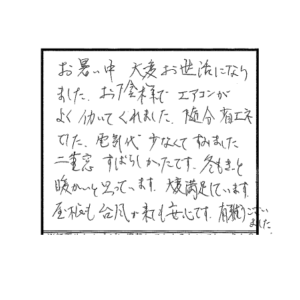 お暑い中 大変お世話になり
ました。お陰様で エアコンが
よく 働いてくれました。随分 省エネ
でした。電気代 少なくて すみました
二重窓 すばらしかったです。冬もきっと
暖かいと思っています。大変満足しています。
屋根も 台風が来ても安心です。有難うござい
ました。